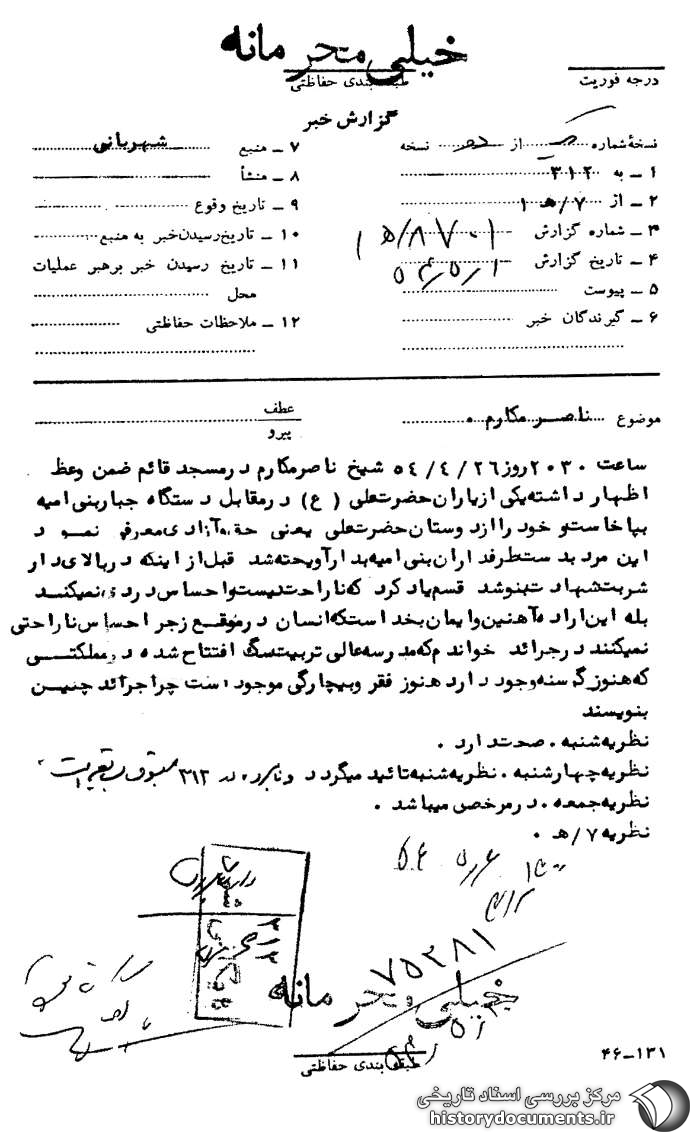 خیلی محرمانه
درجه فوریت
طبقه بندی حفاظتی
گزارش خبر
نسخهٔ شماره از نسخه
۱ ـ به ۳۱۲
۲ ـ از ۷/هـ ۱
۳ ـ شماره گزارش ۸۷۰۱/ه ۱
۴ ـ تاریخ گزارش ۵۴/۵/۱
۵ ـ پیوست
۶ ـ گیرندگان خبر
۷ ـ منبع شهربانی
۸ ـ منشأ
۹ ـ تاریخ وقوع
۱۰ ـ تاریخ رسیدن خبر به منبع
۱۱ ـ تاریخ رسیدن خبر برهبر عملیات
محل
۱۲ ـ ملاحظات حفاظتی
موضوع ناصر مکارم .
عطف
پیرو
ساعت ۲۰۳۰ روز ۵۴/۴/۲۶ شیخ ناصر مکارم در مسجد قائم ضمن وعظ
اظهار داشته یکی از یاران حضرت علی (ع) در مقابل دستگاه جبار بنی امیه
بپا خاست و خود را از دوستان حضرت علی یعنی حق و آزادی معرفی نمود
این مرد بدست طرفداران بنی امیه بدار آویخته شد قبل از اینکه در بالای دار
شربت شهادت بنوشد قسم یاد کرد که ناراحت نیست و احساس دردی نمیکند
بله این اراده آهنین و ایمان بخدا است که انسان در موقع زجر احساس ناراحتی
نمیکند در جرائد خواندم که مدرسه عالی تربیت سگ افتتاح شده در مملکتی
که هنوز گرسنه وجود دارد هنوز فقر و بیچارگی موجود است چرا جرائد چنین
بنویسند
نظریه شنبه . صحت دارد .
نظریه چهارشنبه . نظریه شنبه تائید میگردد و نامبرده در ۳۱۲
نظریه جمعه . در مرخصی میباشد .
نظریه ۷/هـ .
۷۵۳۸۱
خیلی محرمانه
طبقه بندی حفاظتی
۴۶-۱۳۱
مرکز بررسی اسناد تاریخی
historydocuments.ir